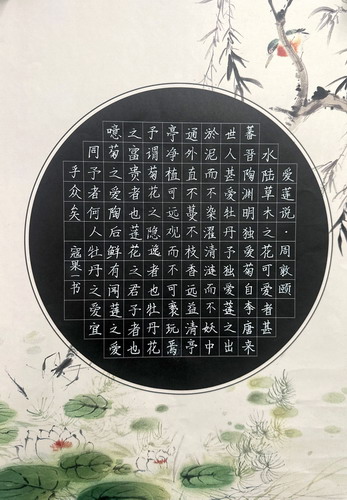 爱莲说·周敦颐
水陆草木之花可爱者甚
蕃晋陶渊明独爱菊自李唐来
世人甚爱牡丹予独爱莲之出
淤泥而不染濯清涟而不妖中
通外直不蔓不枝香远益清亭
亭净植可远观而不可亵玩焉
予谓菊花之隐逸者也牡丹花
之富贵者也莲花之君子者也
噫菊之爱陶后鲜有闻莲之爱
同予者何人牡丹之爱宜
乎众矣 寇果一书